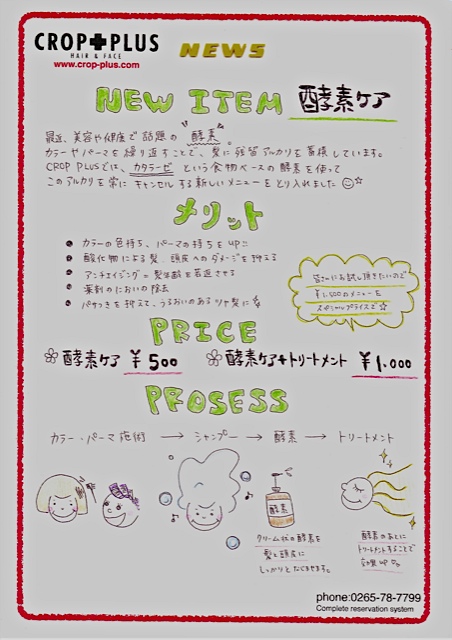 CROP✚PLUS
HAIR & FACE
www.crop-plus.com
NEWS
NEW ITEM 酵素ケア
最近、美容や健康で話題の "酵素"。
カラーやパーマを繰り返すことで、髪に残留アルカリを蓄積しています。
CROP PLUSでは、カタラーゼ という食物ベースの酵素を使って
このアルカリを常に キャンセルする新しいメニューをとり入れました☺☆
メリット
● カラーの色持ち、パーマの持ちをUP!!
● 酸化物による髪、頭皮へのダメージを抑える
● アンチエイジング=髪年齢を若返させる
● 薬剤のにおいの除去
● パサつきを抑えて、うるおいのあるツヤ髪に
皆さんにお試し頂きたいので
¥1,500のメニューを
スペシャルプライスで☆
PRICE
酵素ケア ¥500 酵素ケア+トリートメント ¥1,000
PROSESS
カラー・パーマ施術 → シャンプー → 酵素 → トリートメント
酵素
クリーム状の酵素を
髪と頭皮に
しっかりとなじませます。
酵素のあとに
トリートメントすることで
効果UP
phone:0265-78-7799
Complete reservation system